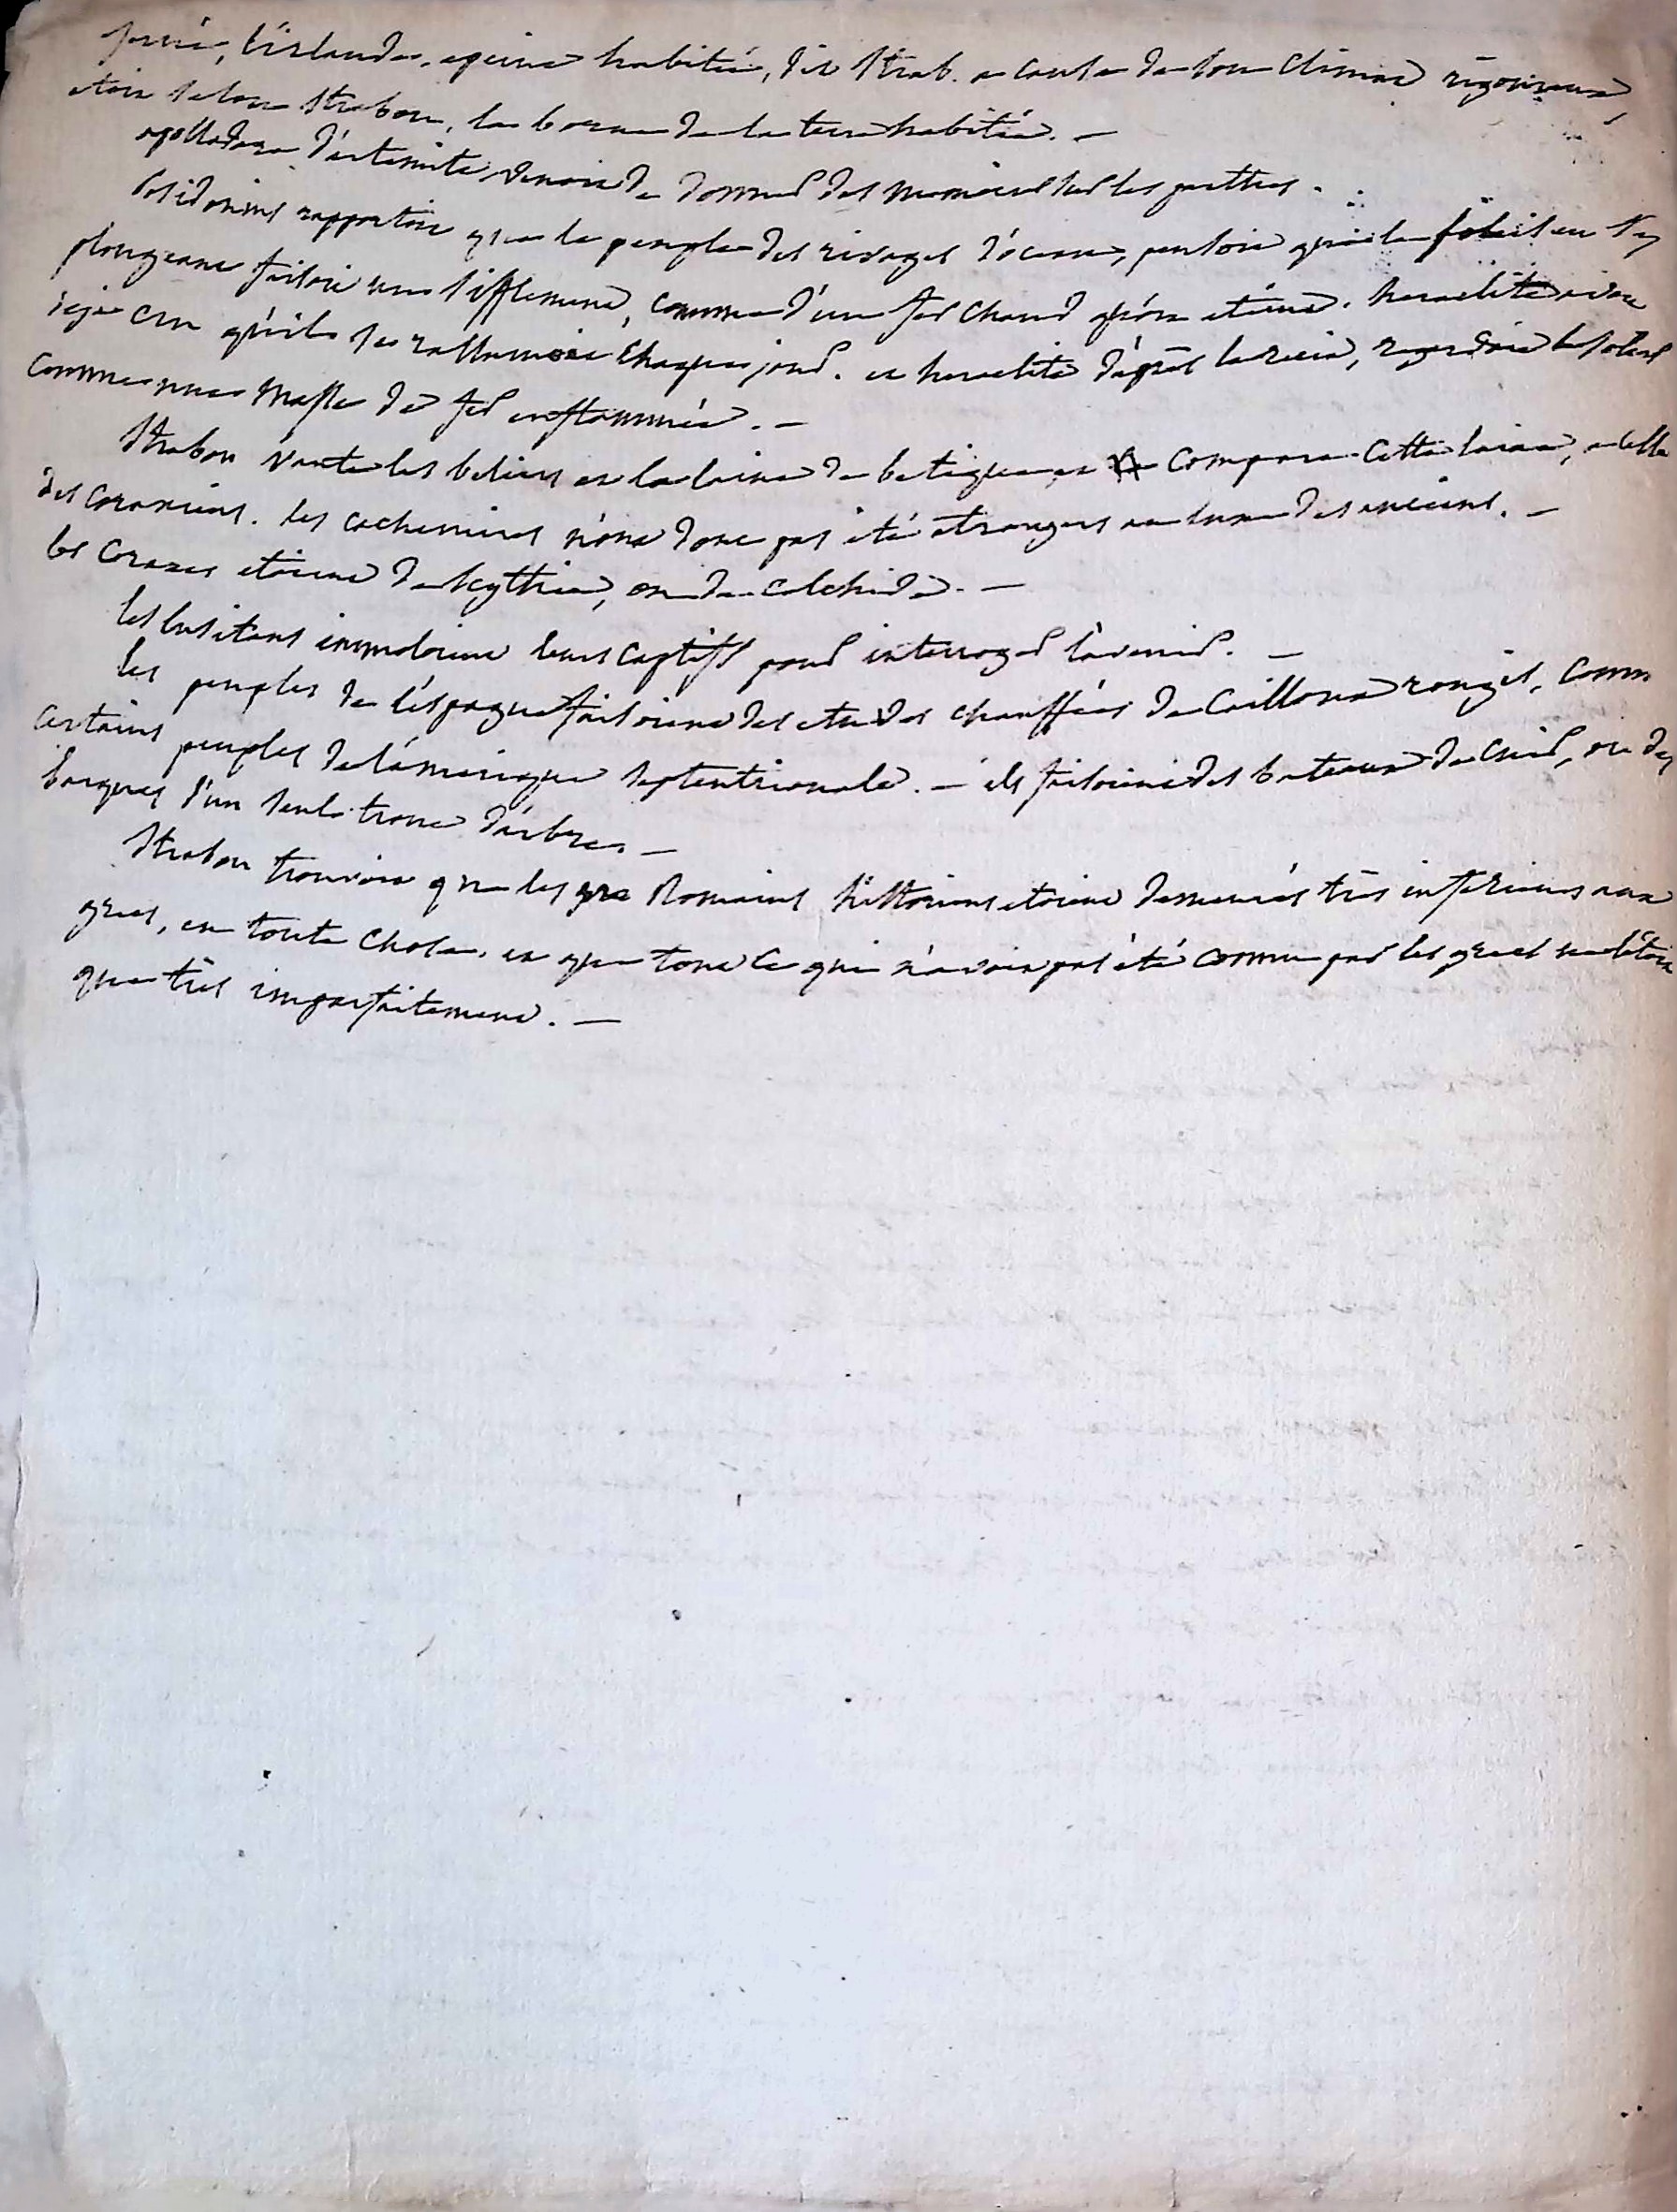 jerné, l'irlande, apeine habitée, dit Strab. a cause de son climat rigoureux,
etoit selon Strabon, la borne de la terre habitée. —
apollodore d'artemite venoit de donner des memoires sur les parthes.
Posidonius rapportoit que le peuple des rivages d'ocean, pensoit que le soleil en s'y
plongeant faisoit un sifflement, comme d'un fer chaud qu'on eteint. heraclite avoit
deja cru qu'il se rallumoit chaque jour. et heraclite d'après le recit, regardoit le soleil
comme une masse de fer enflammée. —
Strabon vante les beliers et la laine de betique et compare cette laine, a celle
des coraxiens. les cachemires n'ont donc pas été etrangers au luxe des anciens. —
les Coraxes etoient de scythie, ou de colchide. —
les lusitans immoloient leurs captifs pour interroger l'avenir. —
les peuples de l'espagne faisoient des etuves chauffées de cailloux rougis, comm
certains peuples de l'amerique septentrionale. — ils faisoient des bateaux de cuir, ou des
barques d'un seul tronc d'arbre. —
Strabon trouvoit que les gre Romains historiens etoient demeurés très inferieurs aux
grecs, en toute chose. et que tout ce qui n'avoit pas été connu par les grecs ne l'étoit
que très imparfaitement. —